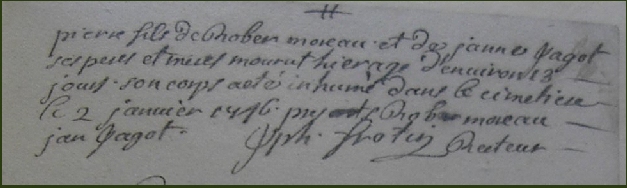 pierre fils de Rober moreau et de janne pagot
ses peres et meres mourut hier agé d'environ 13
jours son corps a eté inhumé dans le cimetiere
le 2 janvier 1746 pnts Rober moreau
jan pagot. Jph. frotin Recteur